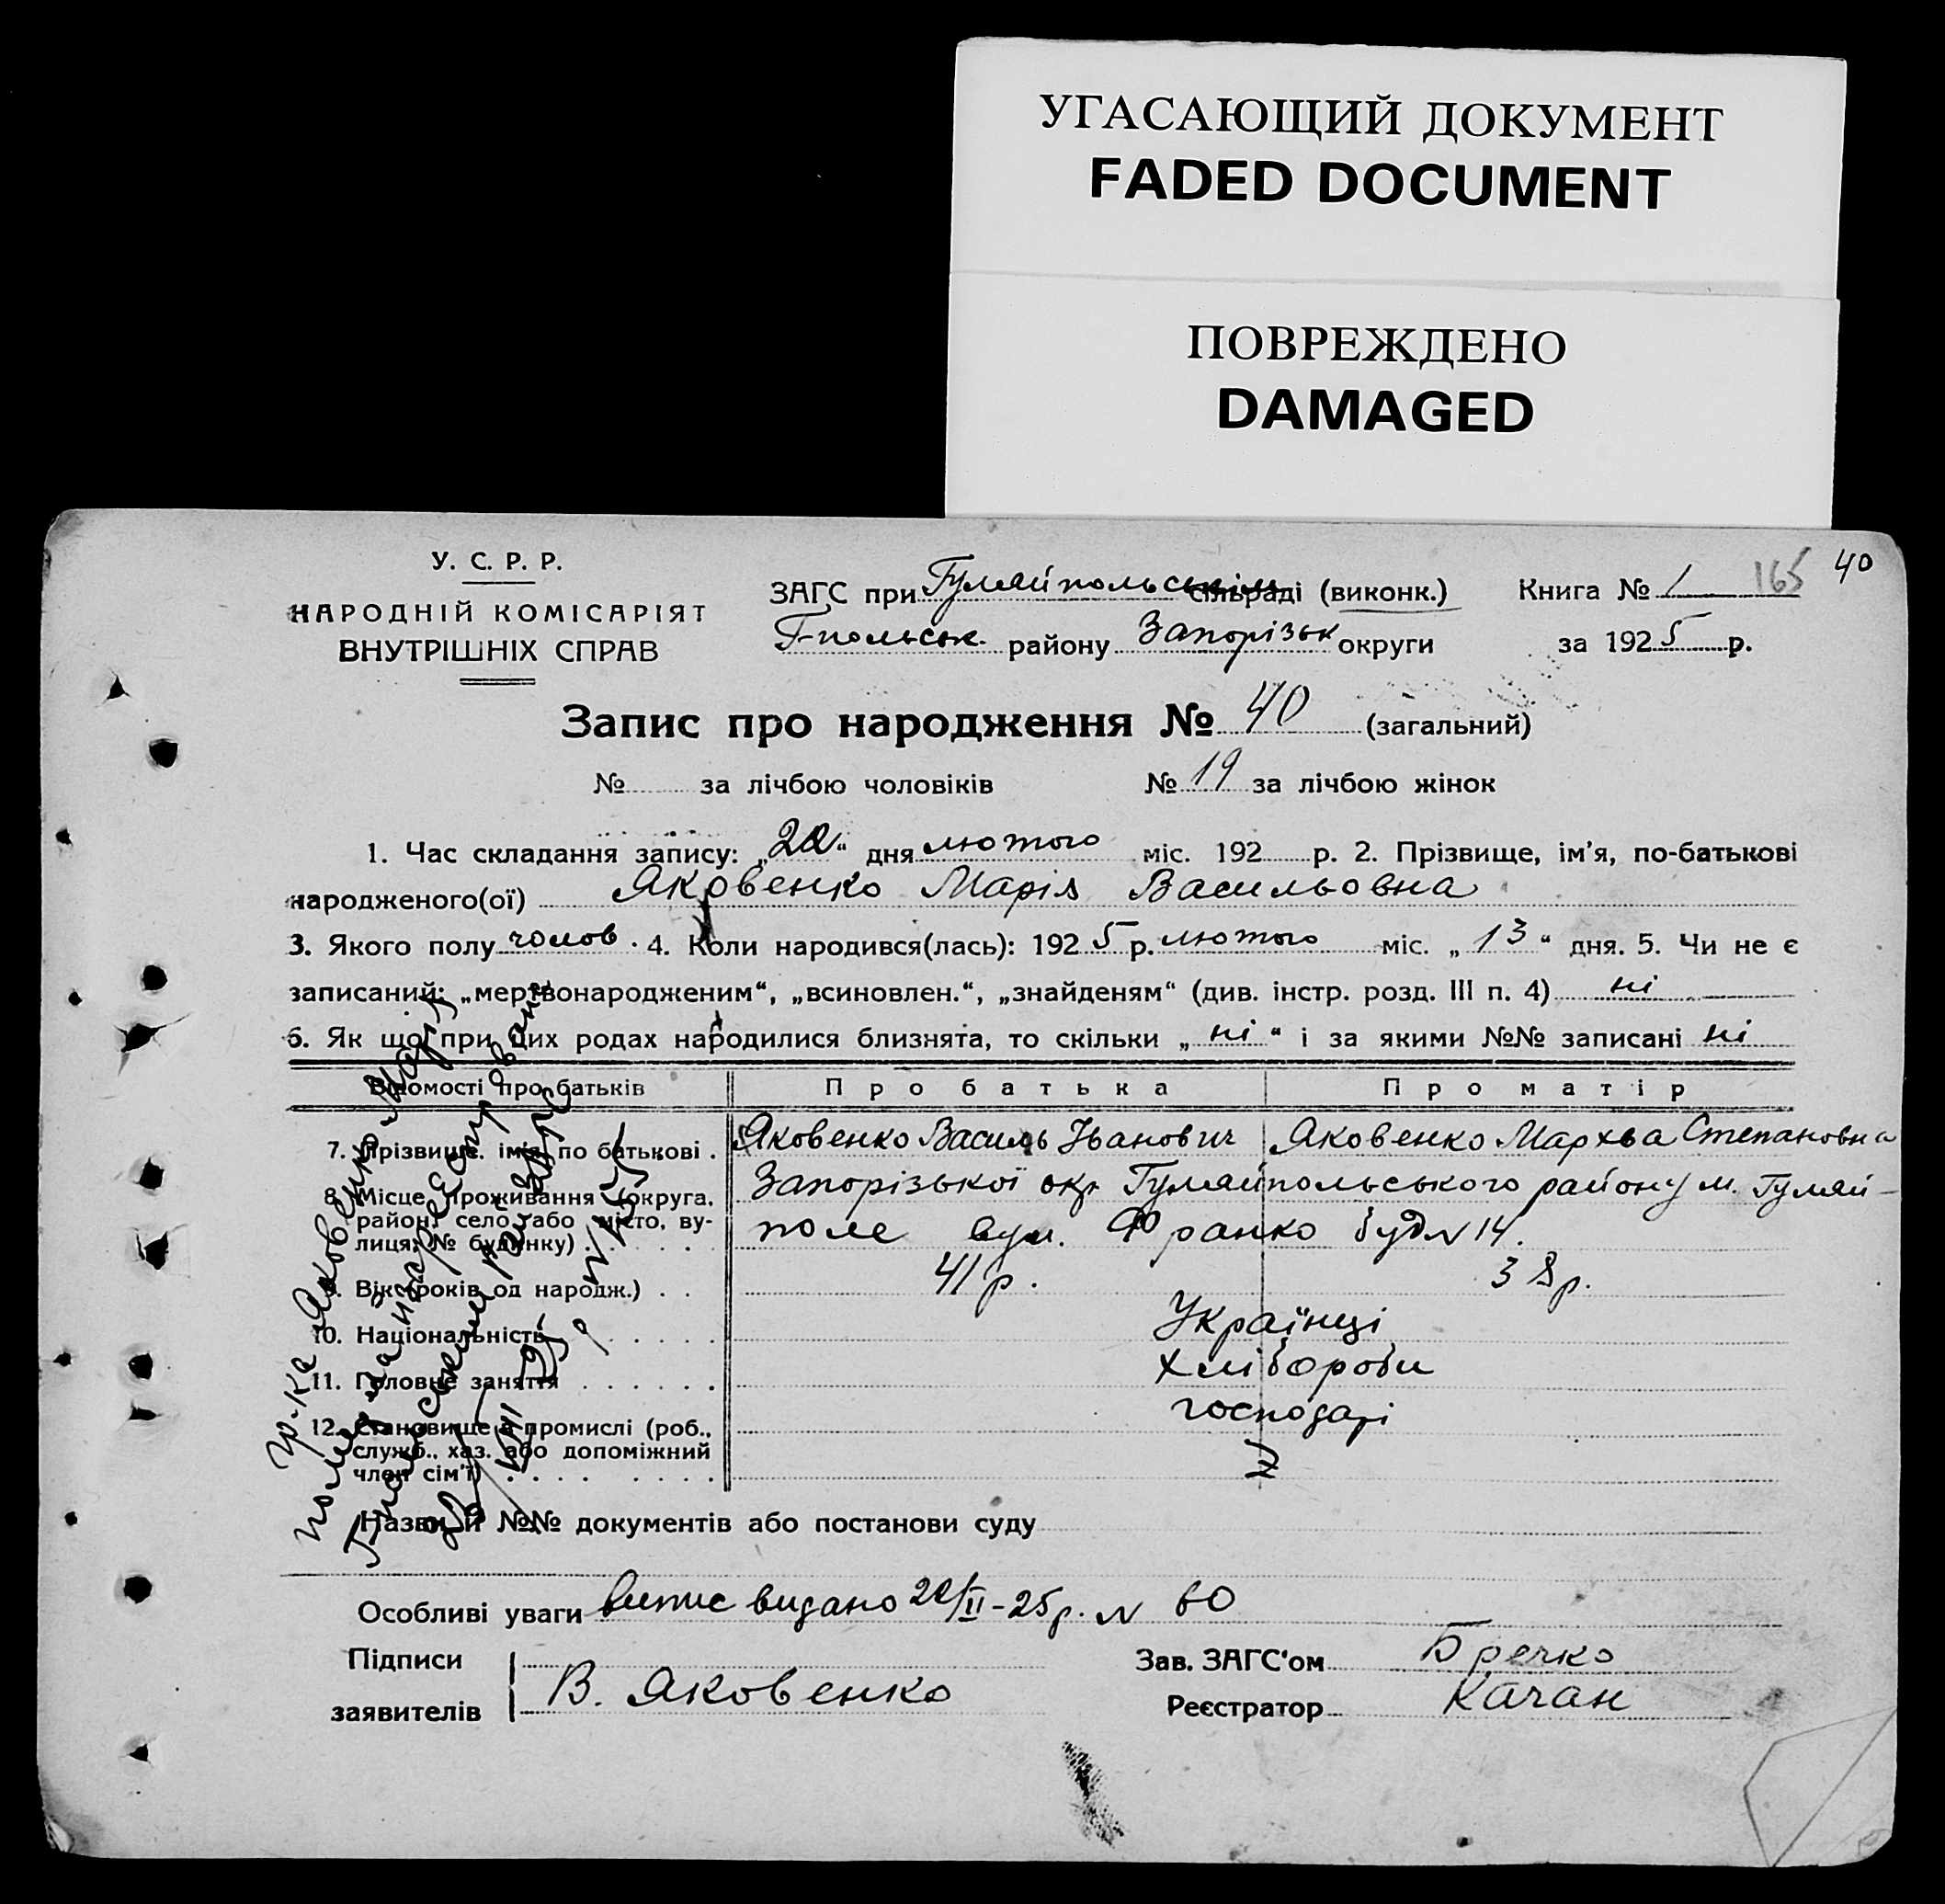 УГАСАЮЩИЙ ДОКУМЕНТ
FADED DOCUMENT
ПОВРЕЖДЕНО
DAMAGED
165 40
У. С. Р. Р.
НАРОДНІЙ КОМІСАРІЯТ
ВНУТРІШНІХ СПРАВ
ЗАГС при Гуляйпольськім сільраді (виконк.) Книга № 1
Г-польськ. району Запорізьк округи за 1925 р.
Запис про народження № 40 (загальний)
№ за лічбою чоловіків № 19 за лічбою жінок
1. Час складання запису: „ “ дня лютого міс. 192 р. 2. Прізвище, ім’я, по-батькові
народженого(ої) Яковенко Марія Васильовна
3. Якого полу чолов. 4. Коли народився(лась): 1925 р. лютого міс. „13“ дня. 5. Чи не є
записаний: „мертвонародженим“, „всиновлен.“, „знайденям“ (див. інстр. розд. III п. 4) ні
6. Як що при цих родах народилися близнята, то скільки „ні“ і за якими №№ записані ні
Відомості про батьків Про батька Про матір
7. Прізвище, ім’я, по батькові . Яковенко Василь Іванович Яковенко Мархва Степановна
8. Місце проживання (округа, Запорізької окр. Гуляйпольського району м. Гуляй-
район, село або місто, ву-
лиця, № будинку) поле вул. Франко буд N 14.
9. Вік (років од народж.) . . 41 р. 38 р.
10. Національність Українці
11. Головне заняття хлібороби
12. Становище в промислі (роб., господарі
служб., хаз. або допоміжний
член сім’ї)
Гр-ка Яковенко Марія
Назви й №№ документів або постанови суду
Особливі уваги випис видано /II-25р. N 60
Підписи
заявителів В. Яковенко
Зав. ЗАГС’ом Бречко
Реєстратор Качан